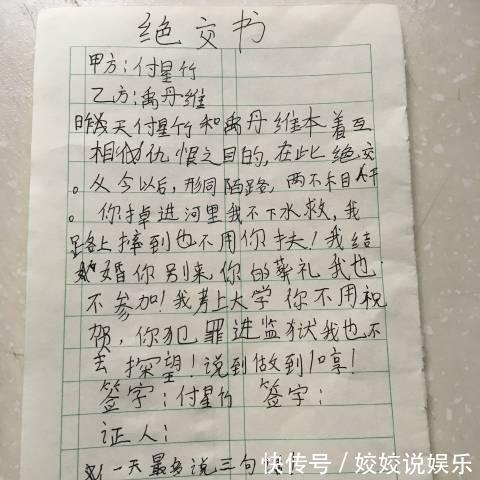 绝交书
甲方：付星竹
乙方：禹丹维
昨天付星竹和禹丹维本着互
相仇恨之目的，在此绝交
。从今以后，形同陌路，两不相干
。你掉进河里我不下水救，我
路上摔到也不用你扶！我结
婚你别来你的葬礼我也
不参加！我考上大学你不用祝
贺，你犯罪进监狱我也不
去探望！说到做到！哼！
签字：付星竹 签字：
证人：
一天最多说三句
快传号／姣姣说娱乐